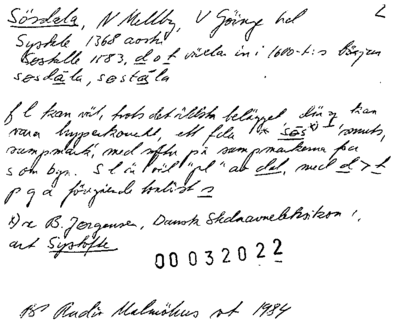 Sösdala, N Mellby, V Göinge hd L
Systele 1368 avskr
Sestelle 1583, d o t växlar in i 1600-t:s början
sesdala, sestala
f l kan väl, trots det äldsta belägget, där y kan
vara hyperkorrekt, ett fda * sės x)
sumpmark, med syftn på sumpmarkerna
s om byn. S l är väl pl av dal, med d > t
p g a föregående tonlöst s
x) se B. Jørgensen, Dansk Stednavneleksikon 1,
art Systofte
00032022
Radio Malmöhus 1984